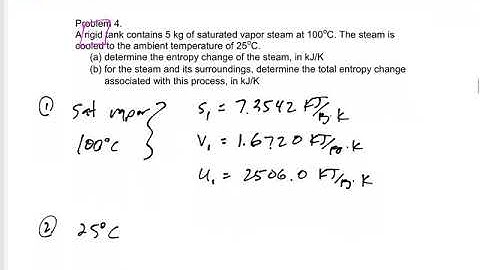 Problem 4.
A rigid tank contains 5 kg of saturated vapor steam at 100°C. The steam is
cooled to the ambient temperature of 25°C.
(a) determine the entropy change of the steam, in kJ/K
(b) for the steam and its surroundings, determine the total entropy change
associated with this process, in kJ/K
① sat vapor } S₁ = 7.3542 KJ/kg·K
100°C V₁ = 1.6720 KJ/kg·K
U₁ = 2506.0 KJ/kg·K
② 25°C